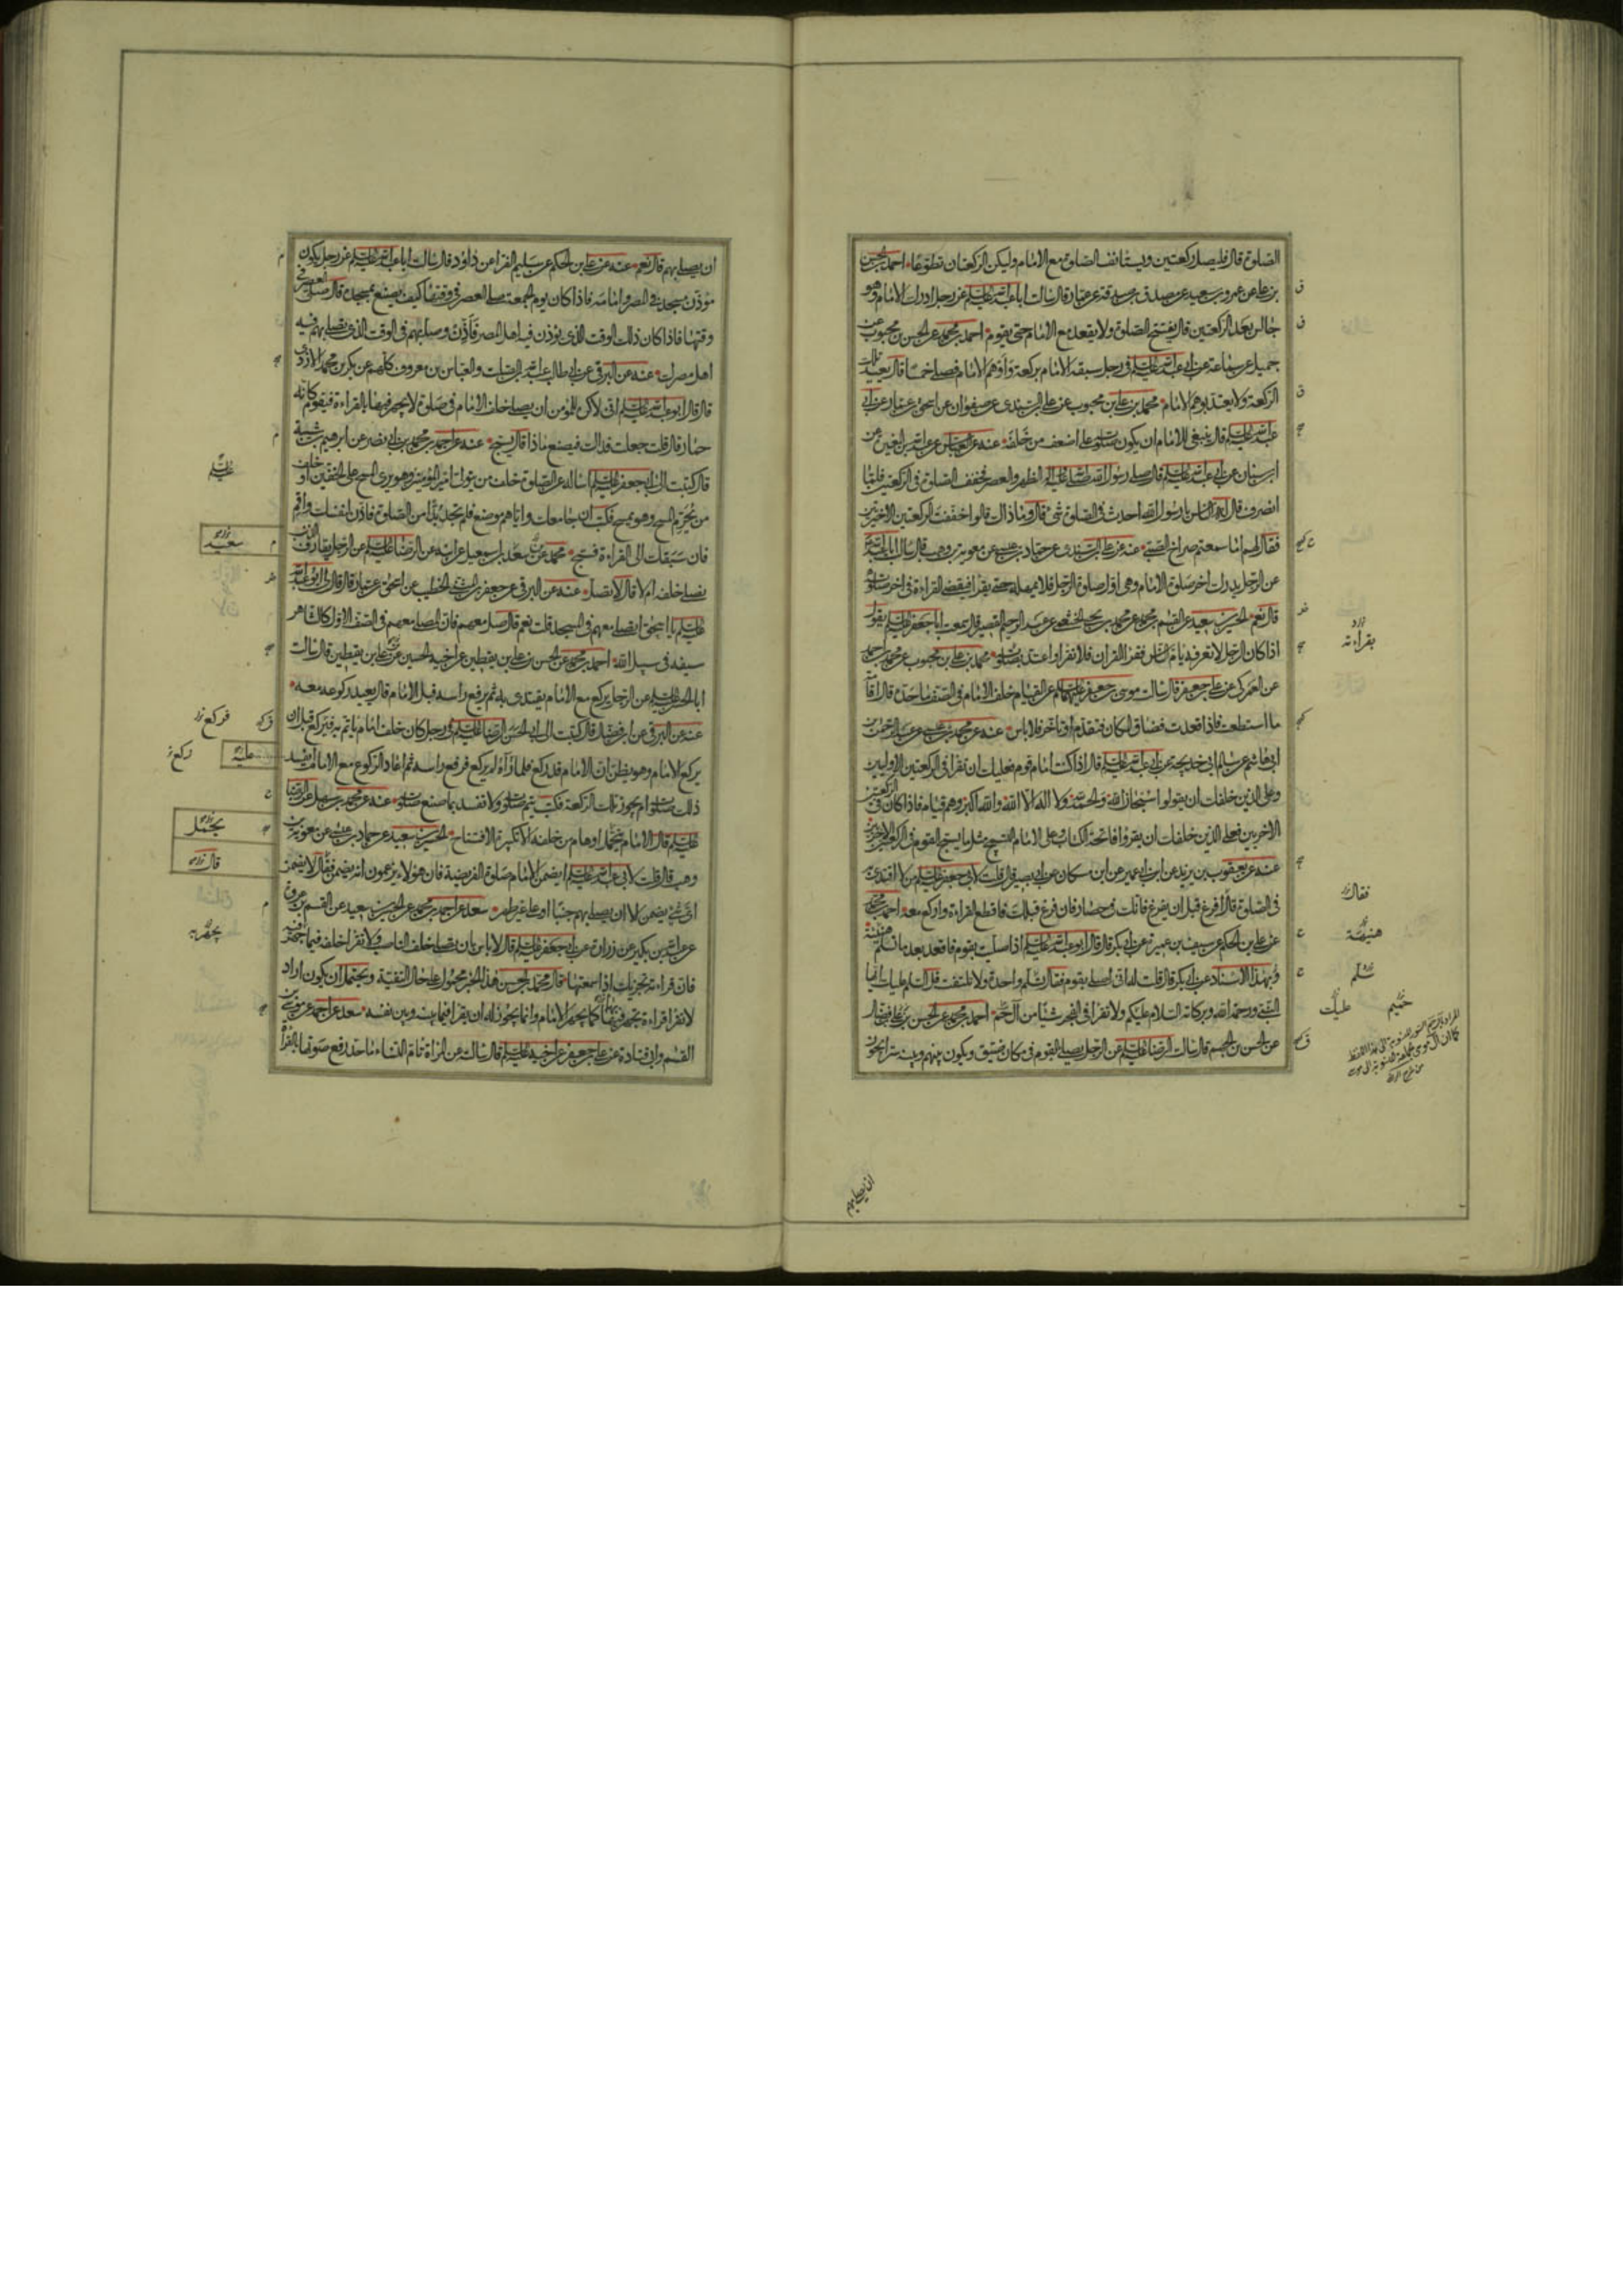 الصلوة قال فليصل ركعتين ويستانف الصلوة مع الامام وليكن الركعتان تطوعا احمد بن الحسن
بن علي عن عمرو بن سعيد عن مصدق بن صدقة عن عمار قال سالت ابا عبد الله عليه السلم عن رجل ادرك الامام وهو
جالس بعد الركعتين قال يفتتح الصلوة ولا يقعد مع الامام حتى يقوم احمد بن محمد عن الحسن بن محبوب عن
جميل عن سماعة عن ابي عبد الله عليه السلم في رجل سبقه الامام بركعة واوهم الامام فصلى خمسا قال يعيد تلك
الركعة ولا يعتد بوهم الامام محمد بن علي بن محبوب عن علي بن السندي عن صفوان عن اسحق بن عمار عن ابي
عبد الله عليه السلم قال ينبغي للامام ان يكون صلوته على اضعف من خلفه عنه عن العباس عن عبد الله بن المغيرة عن
ابن سنان عن ابي عبد الله عليه السلم قال صلى رسول الله صلى الله عليه واله الظهر والعصر فخفف الصلوة في الركعتين فلما
انصرف قال له الناس يا رسول الله احدث في الصلوة شئ قال وما ذاك قالوا خففت الركعتين الاخيرتين
فقال لهم اما سمعتم صراخ الصبي عنه عن علي بن السندي عن حماد بن عيسى عن معوية بن وهب قال سالت ابا عبد الله
عن الرجل يدرك اخر صلوة الامام وهي اول صلوة الرجل فلا يمهله حتى يقرا فيقضي القراءة في اخر صلوته
قال نعم الحسين بن سعيد عن القسم بن محمد عن محمد بن يحيى الخثعمي عن عبد الرحيم القصير قال سمعت ابا جعفر عليه السلم يقول
اذا كان الرجل لا تعرفه يام الناس فقرا القران فلا تقرا واعتد بصلوته محمد بن علي بن محبوب عن محمد بن احمد
عن العمركي عن علي بن جعفر قال سالت موسى بن جعفر عليهما السلم عن القيام خلف الامام في الصف ما حده قال اقامة
ما استطعت فاذا قعدت فضاق المكان فتقدم او تاخر فلا باس عنه عن محمد بن عيسى عن عبد الرحمن بن
ابي هاشم عن سالم ابي خديجة عن ابي عبد الله عليه السلم قال اذا كنت امام قوم فعليك ان تقرا في الركعتين الاوليين
وعلى الذين خلفك ان يقولوا سبحان الله والحمد لله ولا اله الا الله والله اكبر وهم قيام فاذا كان في الركعتين
الاخريين فعلى الذين خلفك ان يقروا فاتحة الكتاب وعلى الامام التسبيح مثل ما يسبح القوم في الركعتين الاخيرتين
عنه عن يعقوب بن يزيد عن ابن ابي عمير عن ابن مسكان عن ابي بصير قال قلت لابي جعفر عليه السلم من لا اقتدي به
في الصلوة قال افرغ قبل ان يفرغ فانك في حصار فان فرغ قبلك فاقطع القراءة واركع معه احمد بن محمد
عن علي بن الحكم عن سيف بن عميرة عن ابي بكر قال قال ابو عبد الله عليه السلم اذا صليت بقوم فاقعد بعد ما تسلم هنيئة
وبهذا الاسناد عن ابي بكر قال قلت له اني اصلي بقوم فقال تسلم واحدة ولا تلتفت قل السلم عليك ايها
النبي ورحمة الله وبركاته السلام عليكم ولا تقرا في الفجر شيئا من آل حم احمد بن محمد عن الحسن بن علي بن فضال
عن الحسن بن الجهم قال سالت الرضا عليه السلم عن الرجل يصلي بالقوم في مكان ضيق ويكون بينهم وبينه ستر ايجوز
بقراءته
فقال
هنيهة
سلم
حميم
عليك
ان يصلي بهم
ان يصلي بهم قال نعم عنه عن علي بن الحكم عن سليم الفرا عن داود قال سالت ابا عبد الله عليه السلم عن رجل يكون
مؤذن مسجد في المصر وامامه فاذا كان يوم الجمعة صلى العصر في وقتها كيف يصنع بمسجده قال صل العصر في
وقتها فاذا كان ذلك الوقت الذي يؤذن فيه اهل المصر فاذن وصل بهم في الوقت الذي يصلي بهم فيه
اهل مصرك عنه عن البرقي عن ابي طالب عبد الله بن الصلت والعباس بن معروف كلهم عن بكر بن محمد الازدي
قال قال ابو عبد الله عليه السلم اني لاكره للمؤمن ان يصلي خلف الامام في صلوة لا يجهر فيها بالقراءة فيقوم كانه
حمار قال قلت جعلت فداك فيصنع ماذا قال يسبح عنه عن احمد بن محمد بن ابي نصر عن ابرهيم بن شيبة
قال كتبت الى ابي جعفر عليه السلم اساله عن الصلوة خلف من يتولى امير المؤمنين وهو يرى المسح على الخفين او خلف
من يحرم المسح وهو يمسح فكتب ان جامعك واياهم موضع فلم تجد بدا من الصلوة فاذن لنفسك واقم
فان سبقك الى القراءة فسبح محمد عن سعد بن اسمعيل عن ابيه عن الرضا عليه السلم عن الرجل يقارف الذنب
يصلي خلفه ام لا قال لا يصل عنه عن البرقي عن جعفر بن المثنى الخطيب عن اسحق بن عمار قال قال لي ابو عبد الله
عليه السلم يا اسحق اتصلي معهم في المسجد قلت نعم قال صل معهم فان المصلي معهم في الصف الاول كالشاهر
سيفه في سبيل الله احمد بن محمد عن الحسن بن علي بن يقطين عن اخيه الحسين عن علي بن يقطين قال سالت
ابا الحسن عليه السلم عن الرجل يركع مع الامام يقتدي به ثم يرفع راسه قبل الامام قال يعيد ركوعه معه
عنه عن البرقي عن ابن فضال قال كتبت الى ابي الحسن الرضا عليه السلم في رجل كان خلف امام ياتم به فيركع قبل ان
يركع الامام وهو يظن ان الامام قد ركع فلما رآه لم يركع فرفع راسه ثم اعاد الركوع مع الامام ايفسد
ذلك صلوته ام يجوز تلك الركعة فكتب يتم صلوته ولا تفسد بما صنع صلوته عنه عن محمد بن سهل عن الرضا
عليه السلم قال الامام يتحمل اوهام من خلفه الا تكبيرة الافتتاح الحسين بن سعيد عن حماد بن عيسى عن معوية بن
وهب قال قلت لابي عبد الله عليه السلم ايضمن الامام صلوة الفريضة فان هؤلاء يزعمون انه يضمن فقال لا يضمن
اي شئ يضمن الا ان يصلي بهم جنبا او على غير طهر سعد عن احمد بن محمد عن الحسين بن سعيد عن القسم بن عروة
عن عبد الله بن بكير عن زرارة عن ابي جعفر عليه السلم قال لا باس بان تصلي خلف الناصب ولا تقرا خلفه فيما يجهر فيه
فان قراءته تجزيك اذا سمعتها قال محمد بن الحسن هذا الخبر محمول على حال التقية ويحتمل ان يكون اراد
لا تقرا قراءة تجهر فيها كما يجهر الامام وانما يجوز له ان يقرا فيما بينه وبين نفسه سعد عن احمد عن موسى بن
القسم وابي قتادة عن علي بن جعفر عن اخيه عليه السلم قال سالته عن المراة تام النساء ما حد رفع صوتها بالقراة
سعيد
فركع
ركع
عليه
يحتمل
قال
يجهر به